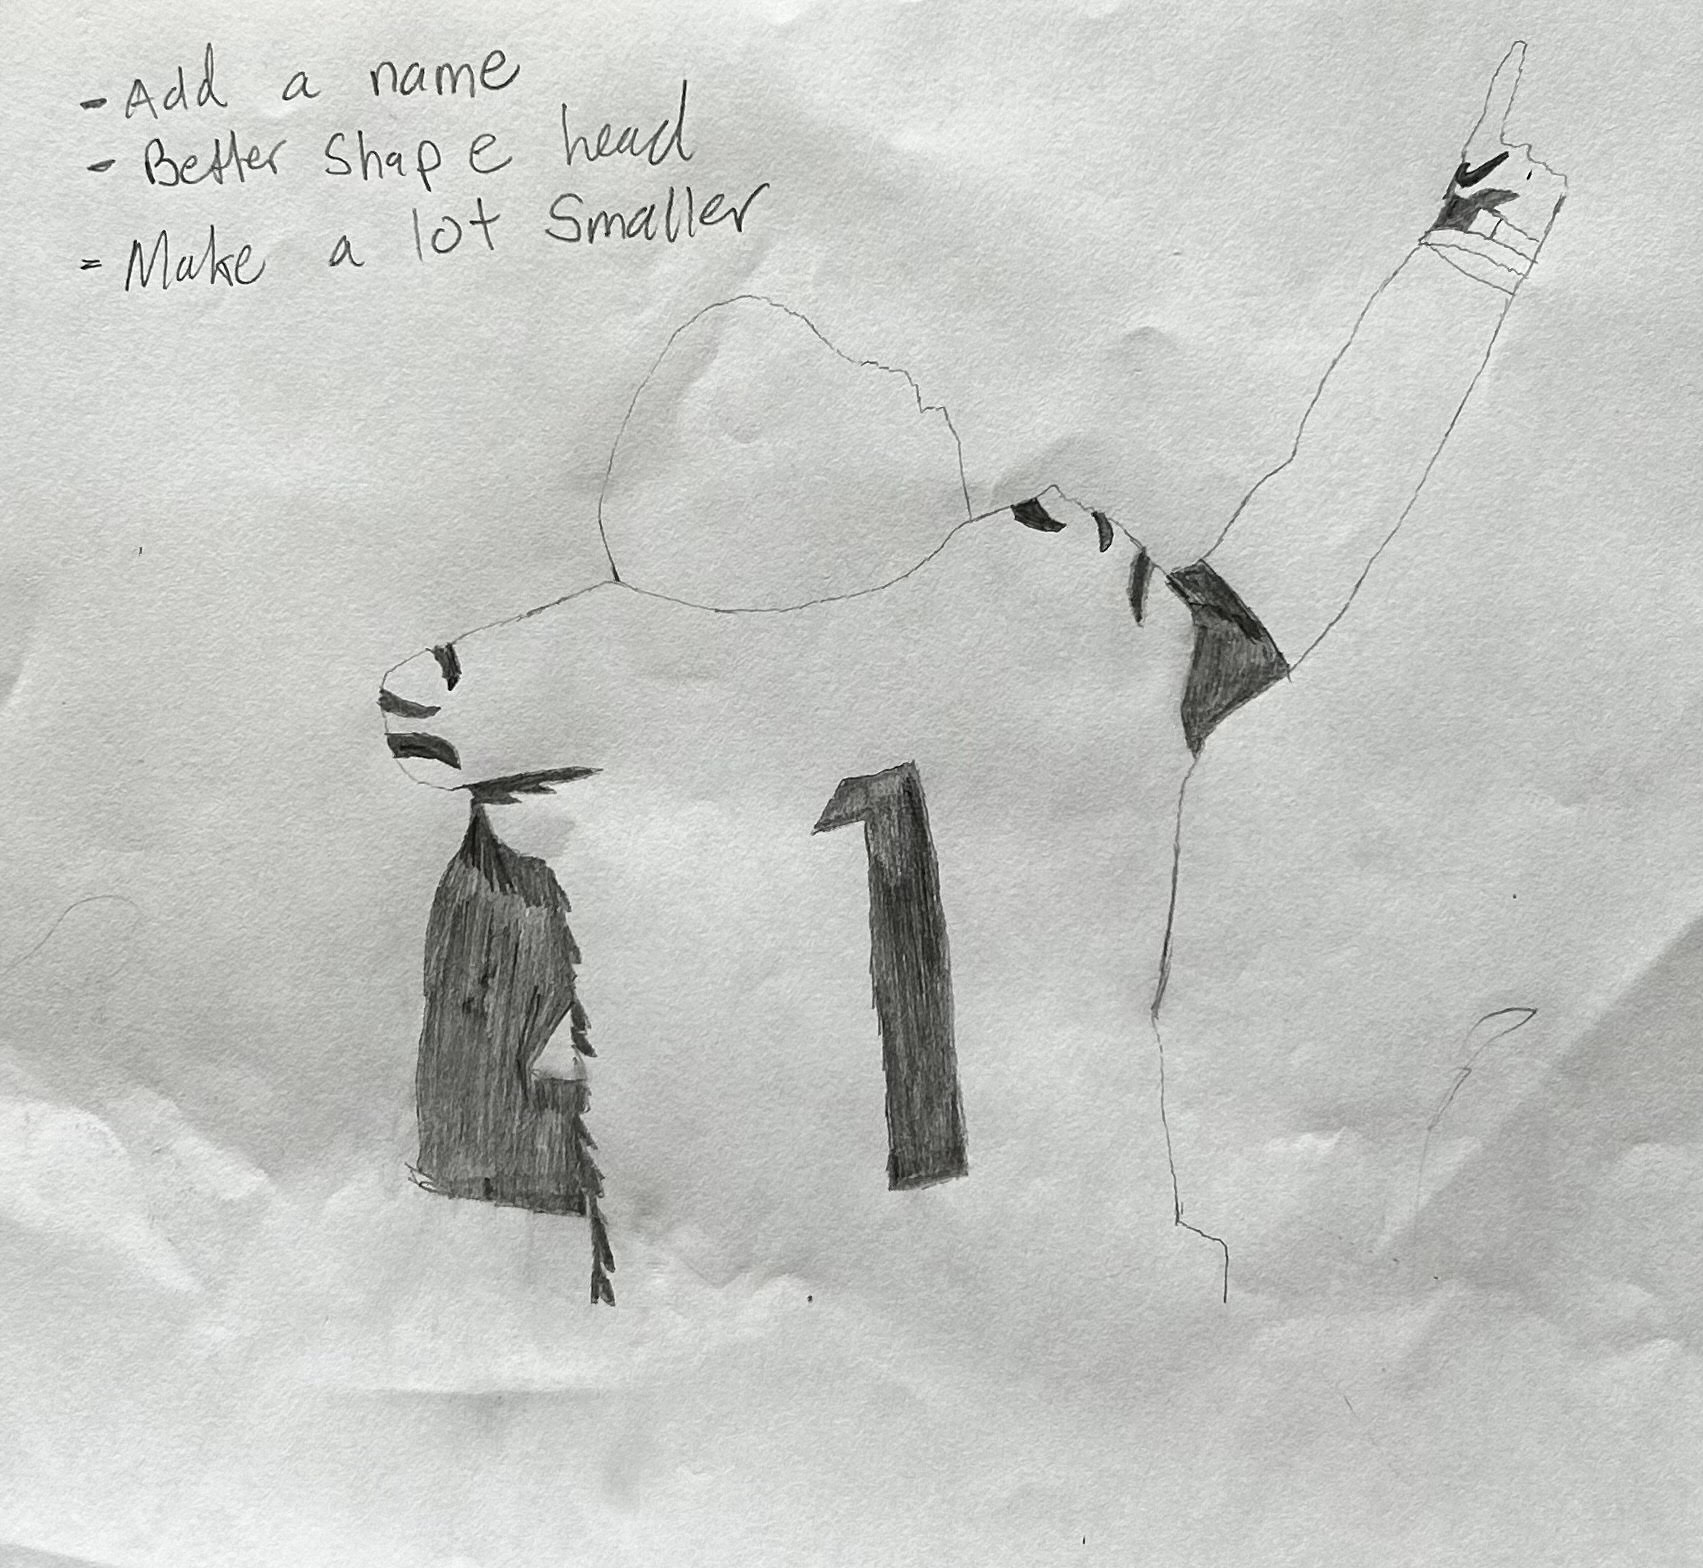 - Add a name
- Better shape head
= Make a lot smaller
1